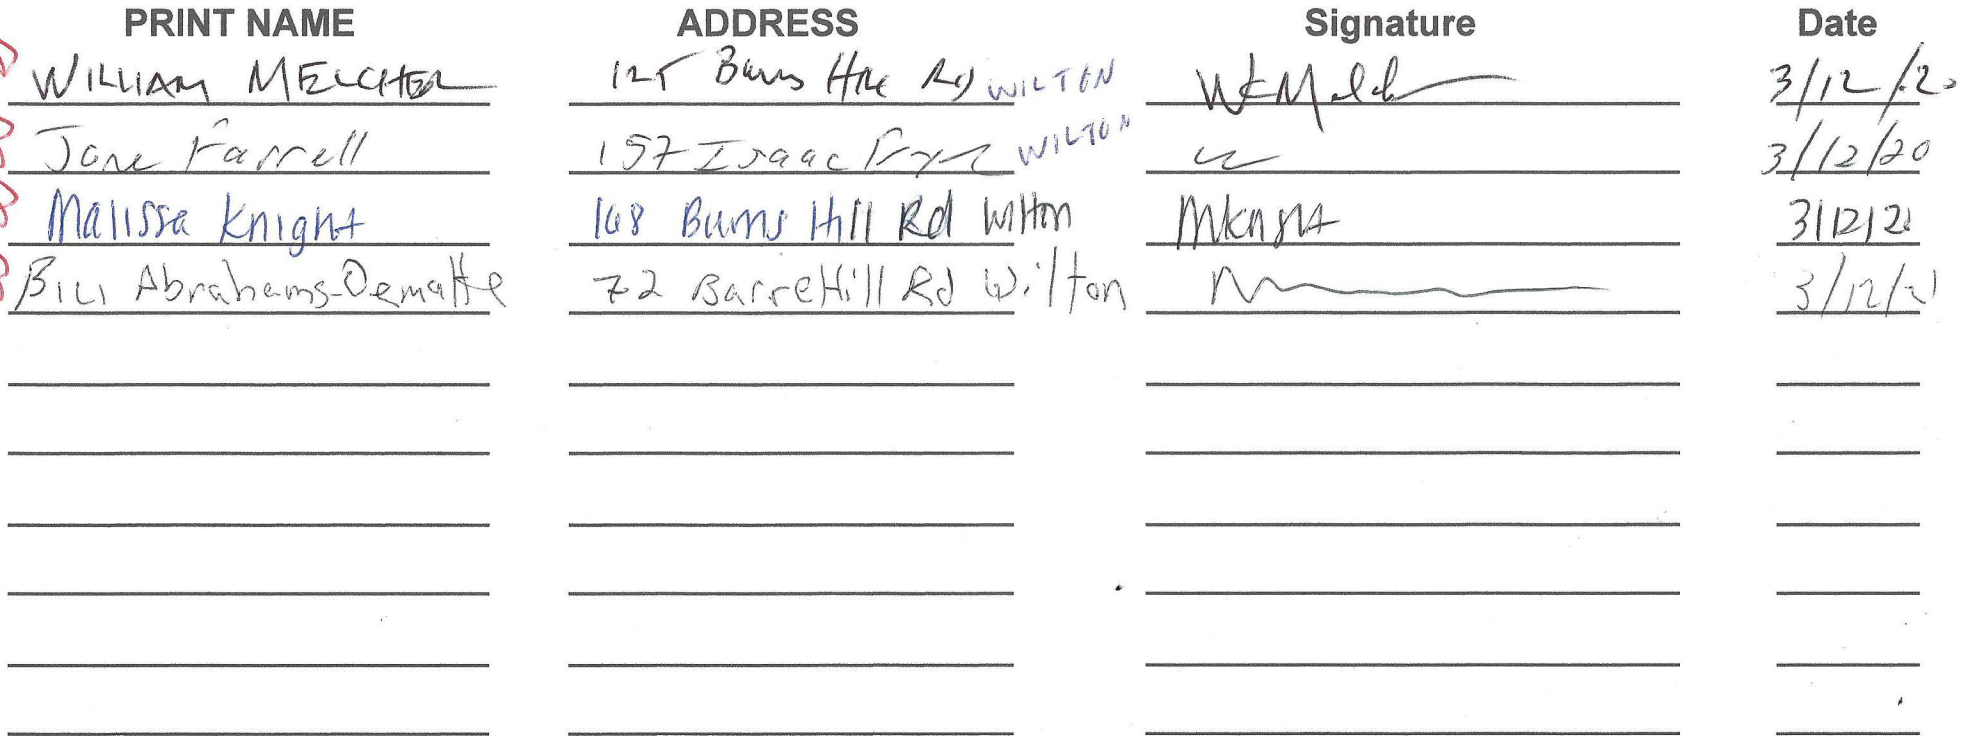 PRINT NAME ADDRESS Signature Date
WILLIAM MELCHER 125 Burns Hill Rd WILTON WKMelch 3/12/20
Jane Farrell 157 Isaac Frye WILTON 3/12/20
Malissa Knight 168 Burns Hill Rd Wilton MKnight 3/12/20
Bill Abrahams-Dematte 72 Barrett Hill Rd Wilton 3/12/20